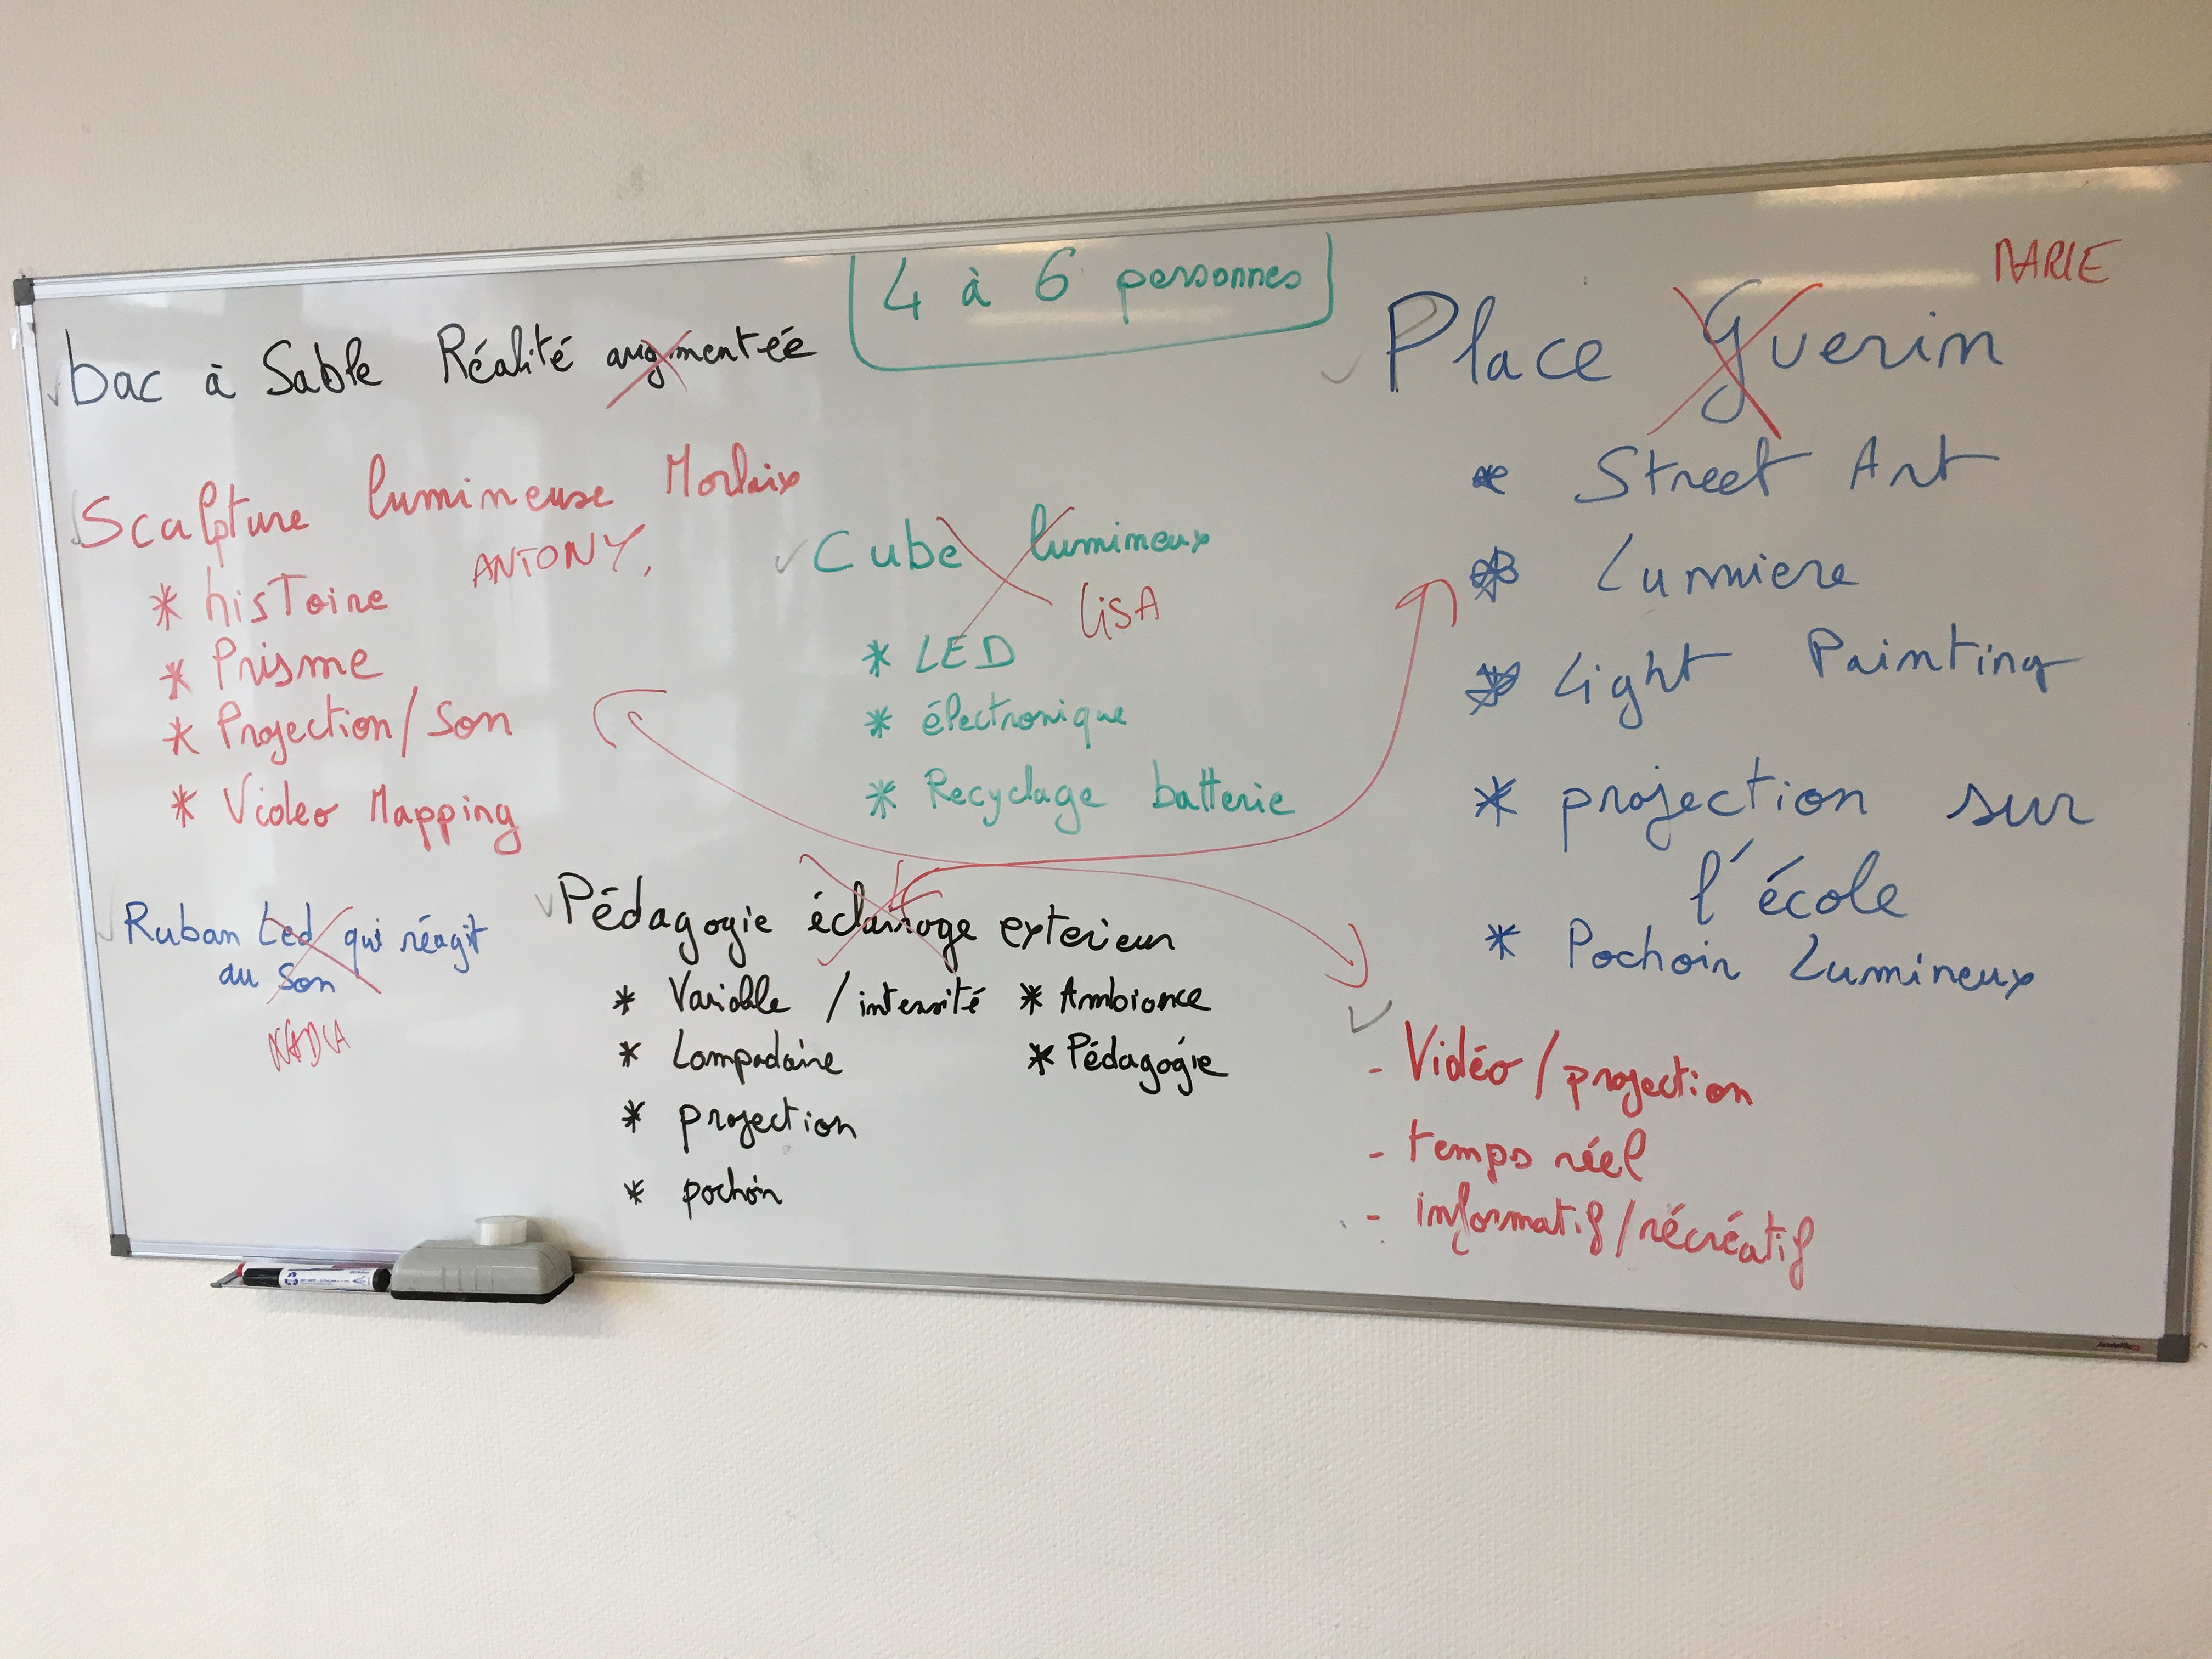 4 à 6 personnes
bac à Sable Réalité augmentée
Sculpture lumineuse Morlaix
ANTONY.
* hisToire
* Prisme
* Projection/Son
* Video Mapping
Ruban Led qui réagit
au Son
NADIA
Cube lumineux
LiSA
* LED
* électronique
* Recyclage batterie
Pédagogie éclairage exterieur
* Variable / intensité * Ambiance
* Lampadaire * Pédagogie
* projection
* pochoir
MARIE
Place Guerin
* Street Art
* Lumiere
* Light Painting
* projection sur
l'école
* Pochoir Lumineux
- Vidéo / projection
- temps réel
- informatif/récréatif